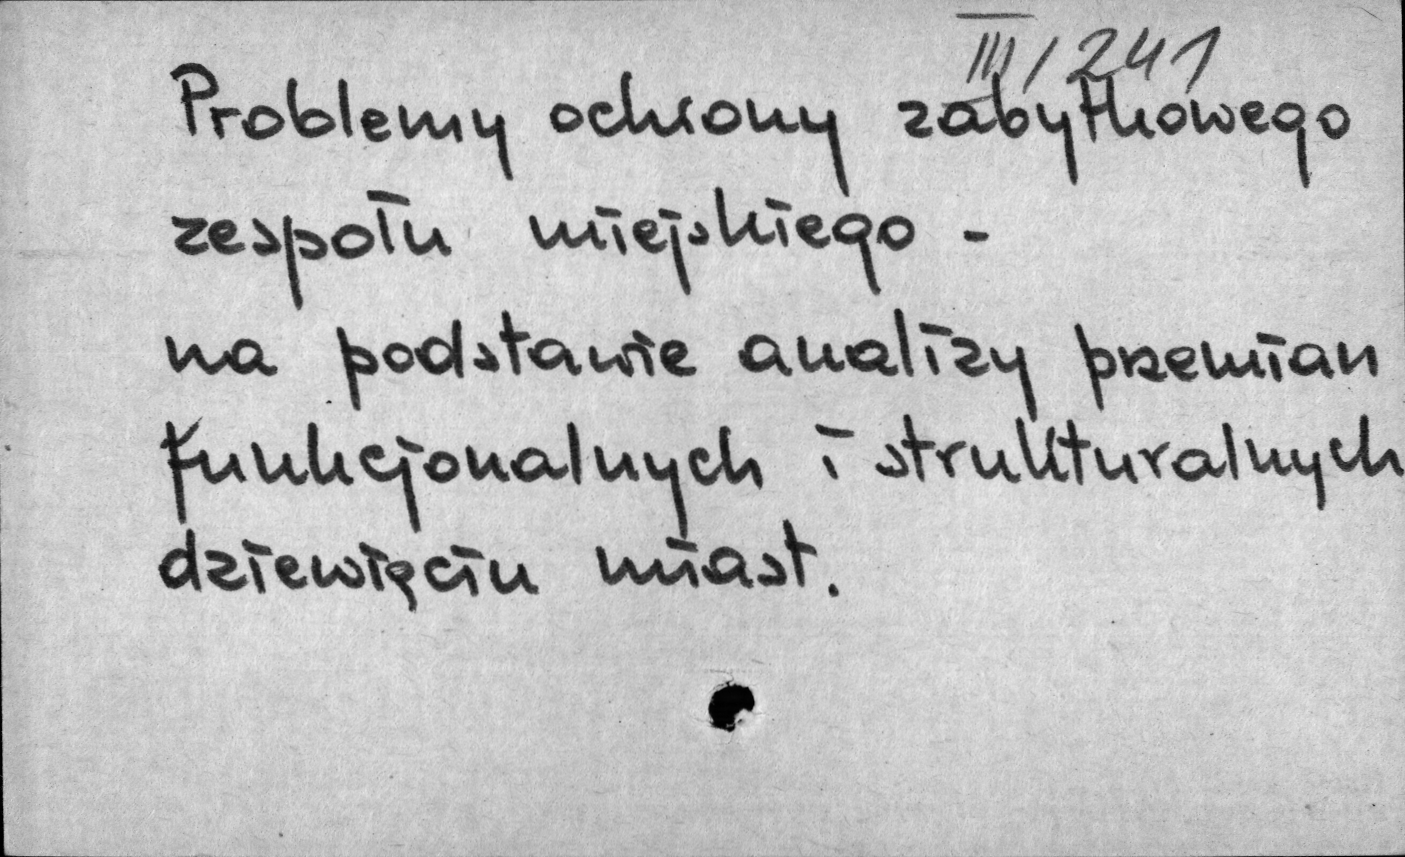 III/241
Problemy ochrony zabytkowego
zespołu miejskiego -
na podstawie analizy przemian
funkcjonalnych i strukturalnych
dziewięciu miast.